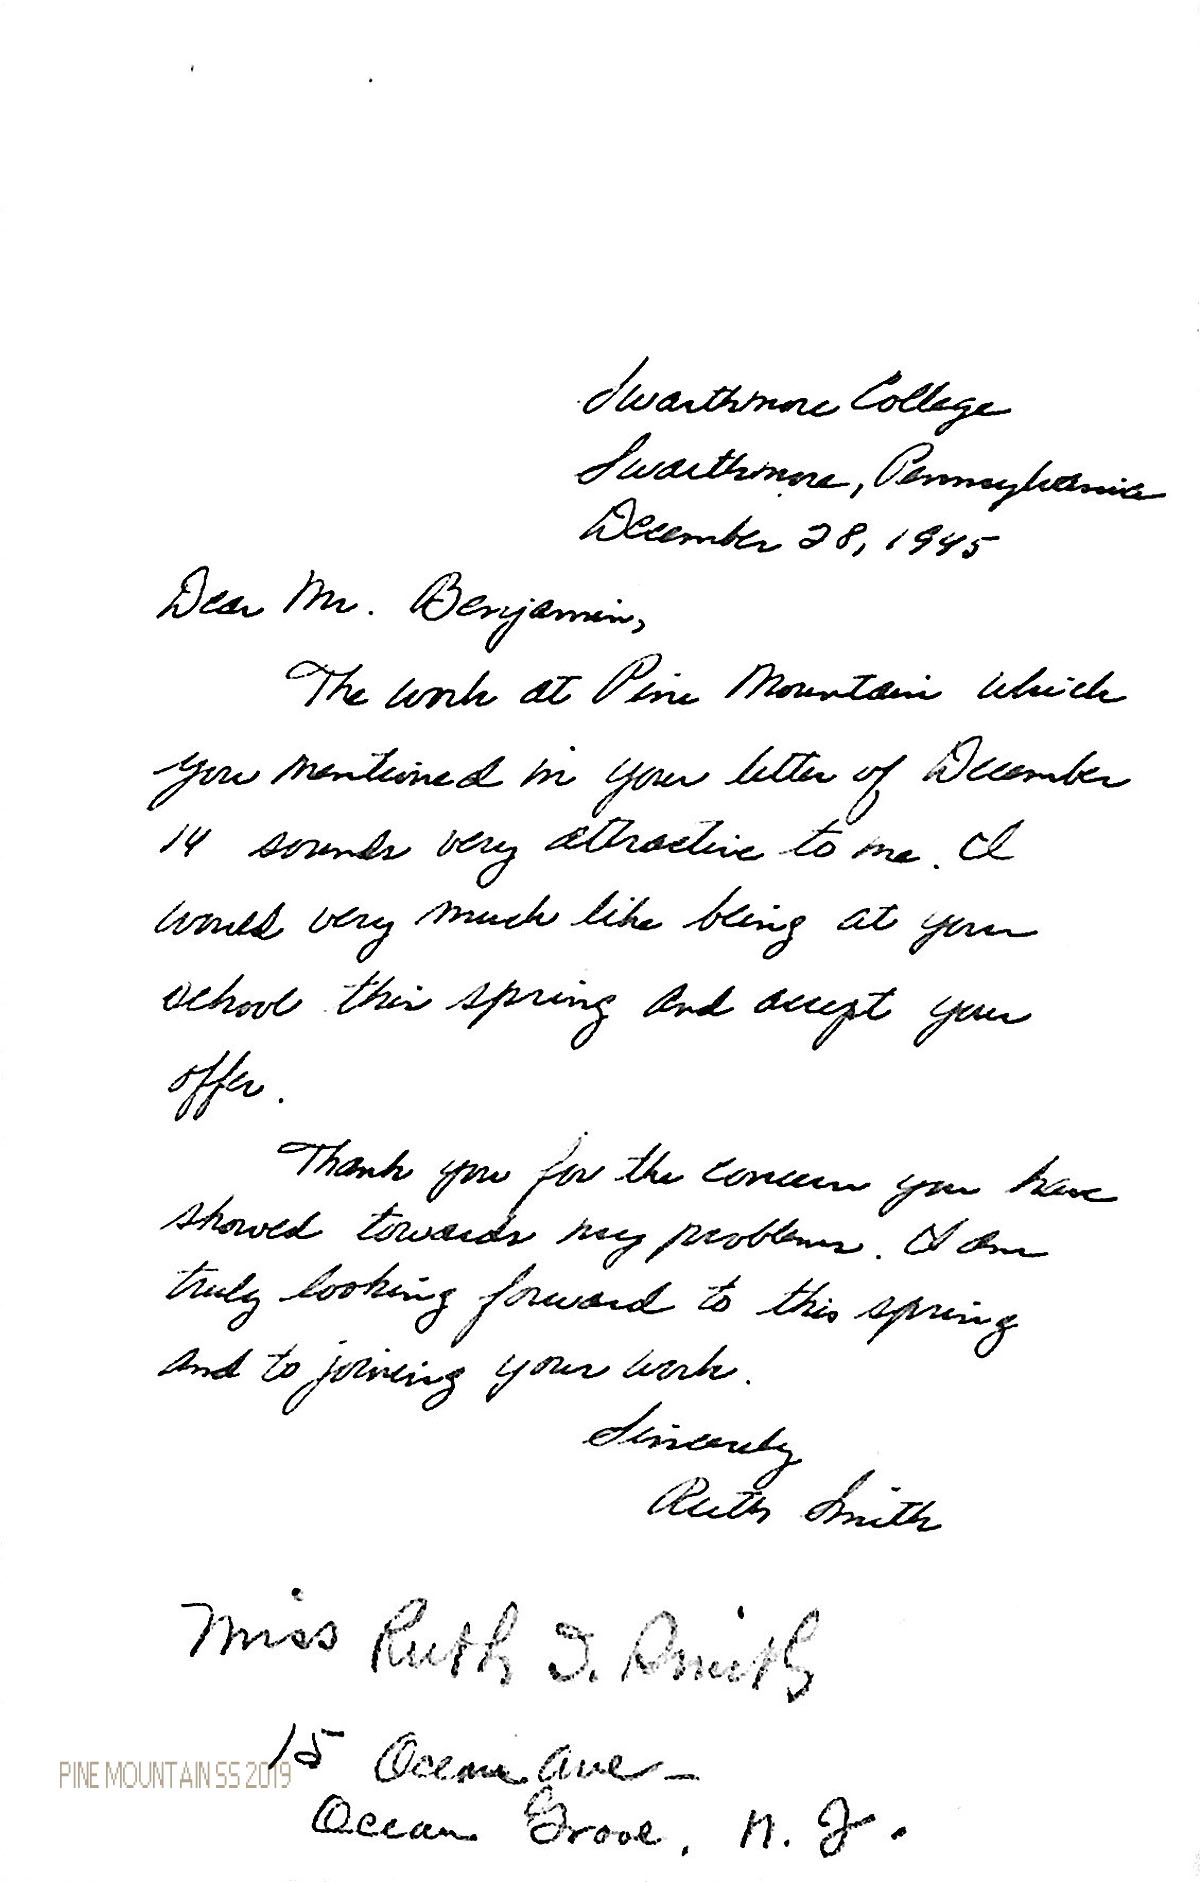 Swarthmore College
Swarthmore, Pennsylvania
December 28, 1945
Dear Mr. Benjamin,
The work at Pine Mountain which
you mentioned in your letter of December
14 sounds very attractive to me. I
would very much like being at your
school this spring and accept your
offer.
Thank you for the concern you have
showed towards my problems. I am
truly looking forward to this spring
and to joining your work.
Sincerely
Ruth Smith
Miss Ruth I. Smith
15 Ocean Ave -
Ocean Grove, N. J.
PINE MOUNTAIN SS 2019